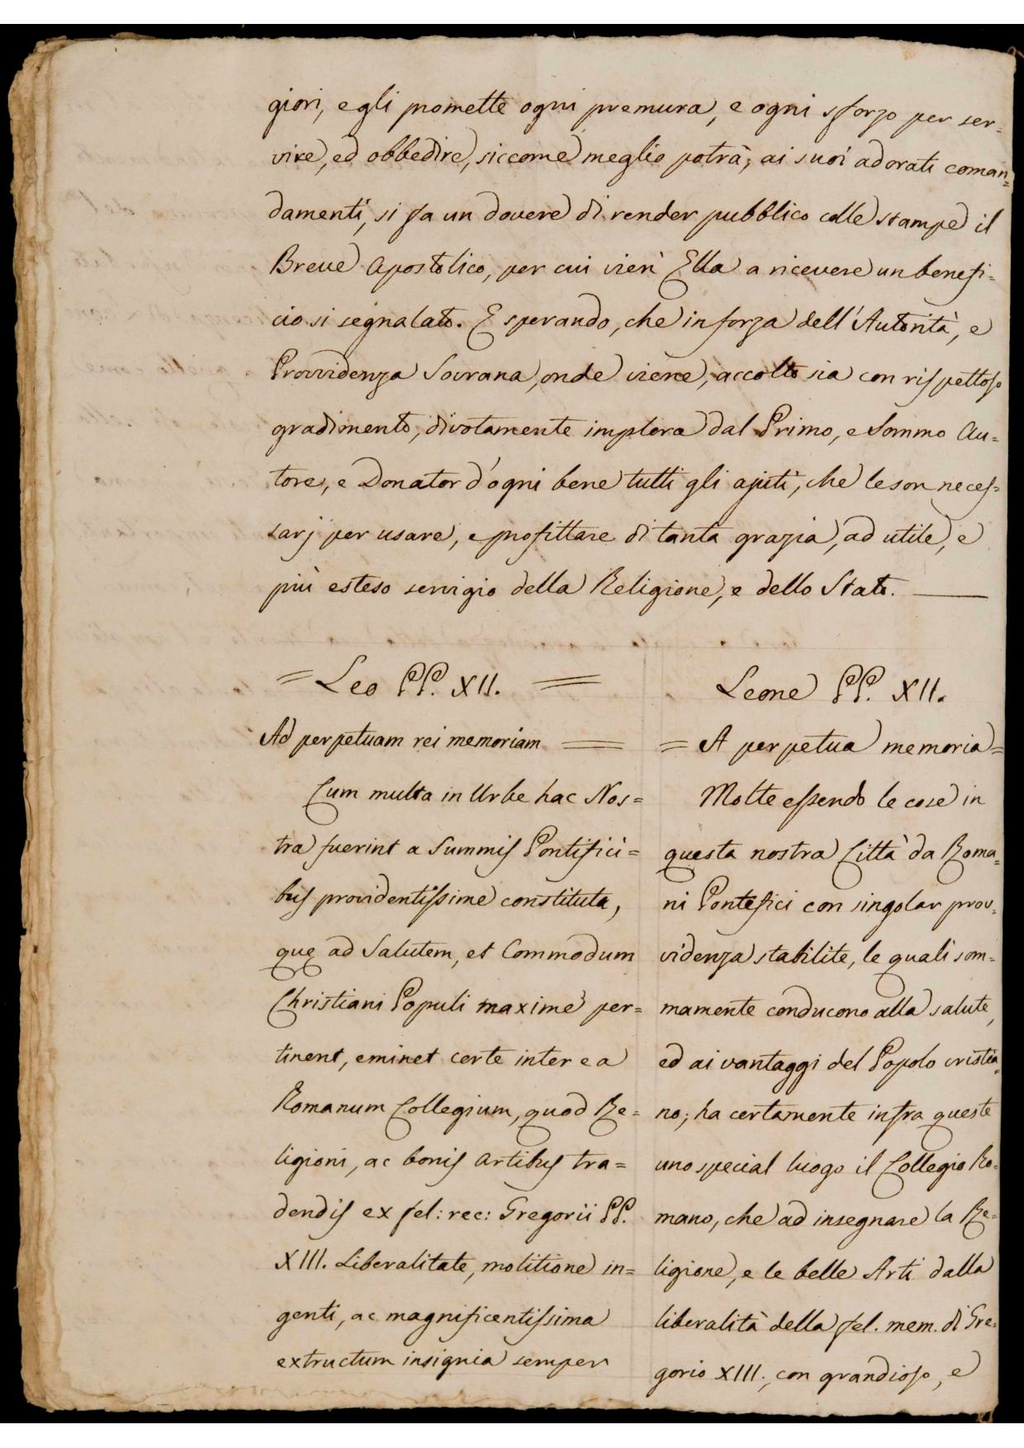 giori, egli promette ogni premura, e ogni sforzo per ser=
vire, ed obbedire, siccome meglio potrà, ai suoi adorati coman=
damenti, si fa un dovere di render pubblico colle stampe il
Breve Apostolico, per cui vien Ella a ricevere un benefi=
cio si segnalato. E sperando, che in forza dell'Autorità, e
Provvidenza Sovrana, onde viene, accolto sia con rispettoso
gradimento, divotamente implora dal Primo, e Sommo Au=
tore, e Donator d'ogni bene tutti gli ajuti, che le son neces=
sarj per usare, e profittare di tanta grazia, ad utile, e
più esteso servigio della Religione, e dello Stato. ——
= Leo PP. XII. =
Ad perpetuam rei memoriam =
Cum multa in Urbe hac Nos=
tra fuerint a Summis Pontifici=
bus providentissime constituta,
quę ad Salutem, et Commodum
Christiani Populi maxime per=
tinent, eminet certe inter ea
Romanum Collegium, quod Re=
ligioni, ac bonis Artibus tra=
dendis ex fel: rec: Gregorii PP.
XIII. Liberalitate, molitione in=
genti, ac magnificentissima
extructum insignia semper
Leone PP. XII.
= A perpetua memoria=
Molte essendo le cose in
questa nostra Città da Roma=
ni Pontefici con singolar prov=
videnza stabilite, le quali som=
mamente conducono alla salute,
ed ai vantaggi del Popolo cristia=
no; ha certamente infra queste
uno special luogo il Collegio Ro=
mano, che ad insegnare la Re=
ligione, e le belle Arti dalla
liberalità della fel. mem. di Gre=
gorio XIII., con grandioso, e